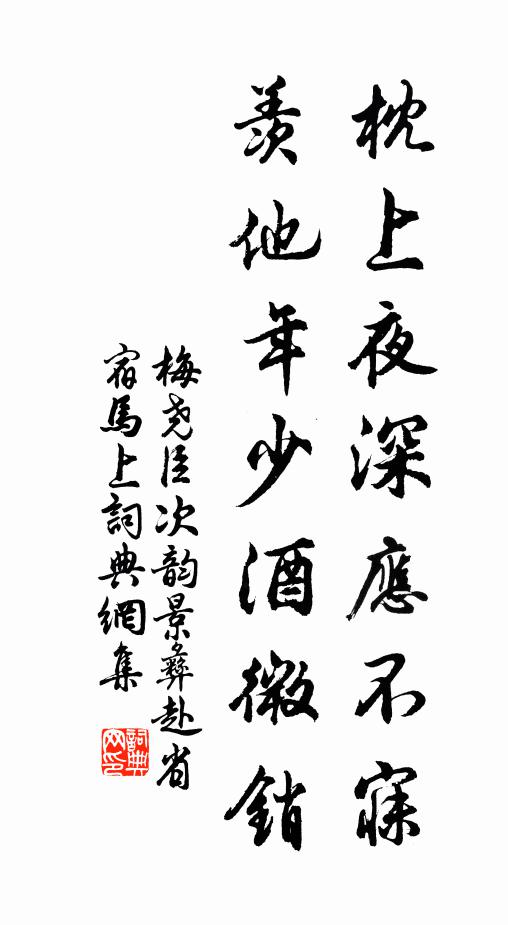 枕上夜深應不寐
羨他年少酒微銷
梅堯臣次韵景彝赴省
宿馬上詞典網集
詞典网印